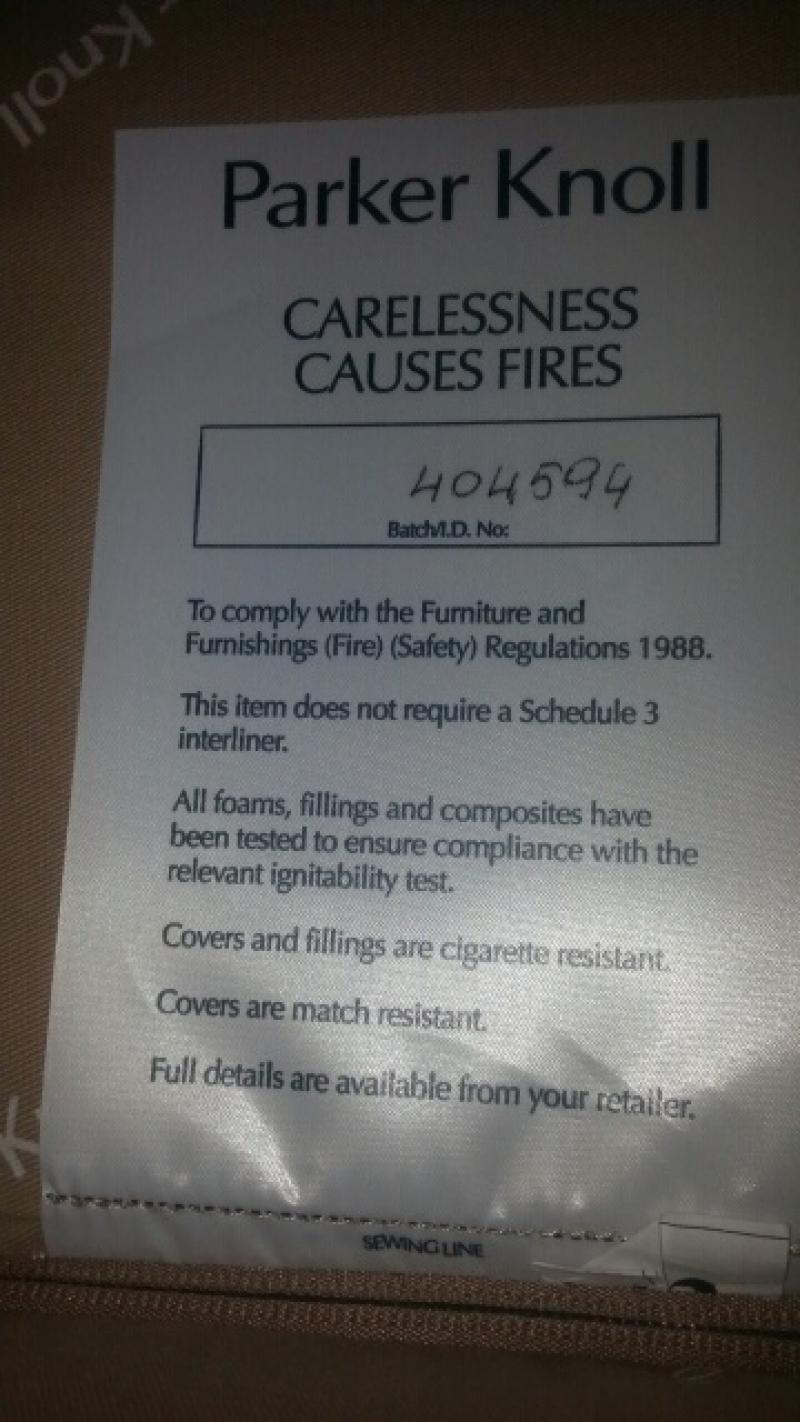 Knoll
Parker Knoll
CARELESSNESS
CAUSES FIRES
404594
Batch/I.D. No:
To comply with the Furniture and
Furnishings (Fire) (Safety) Regulations 1988.
This item does not require a Schedule 3
interliner.
All foams, fillings and composites have
been tested to ensure compliance with the
relevant ignitability test.
Covers and fillings are cigarette resistant.
Covers are match resistant.
Full details are available from your retailer.
SEWING LINE